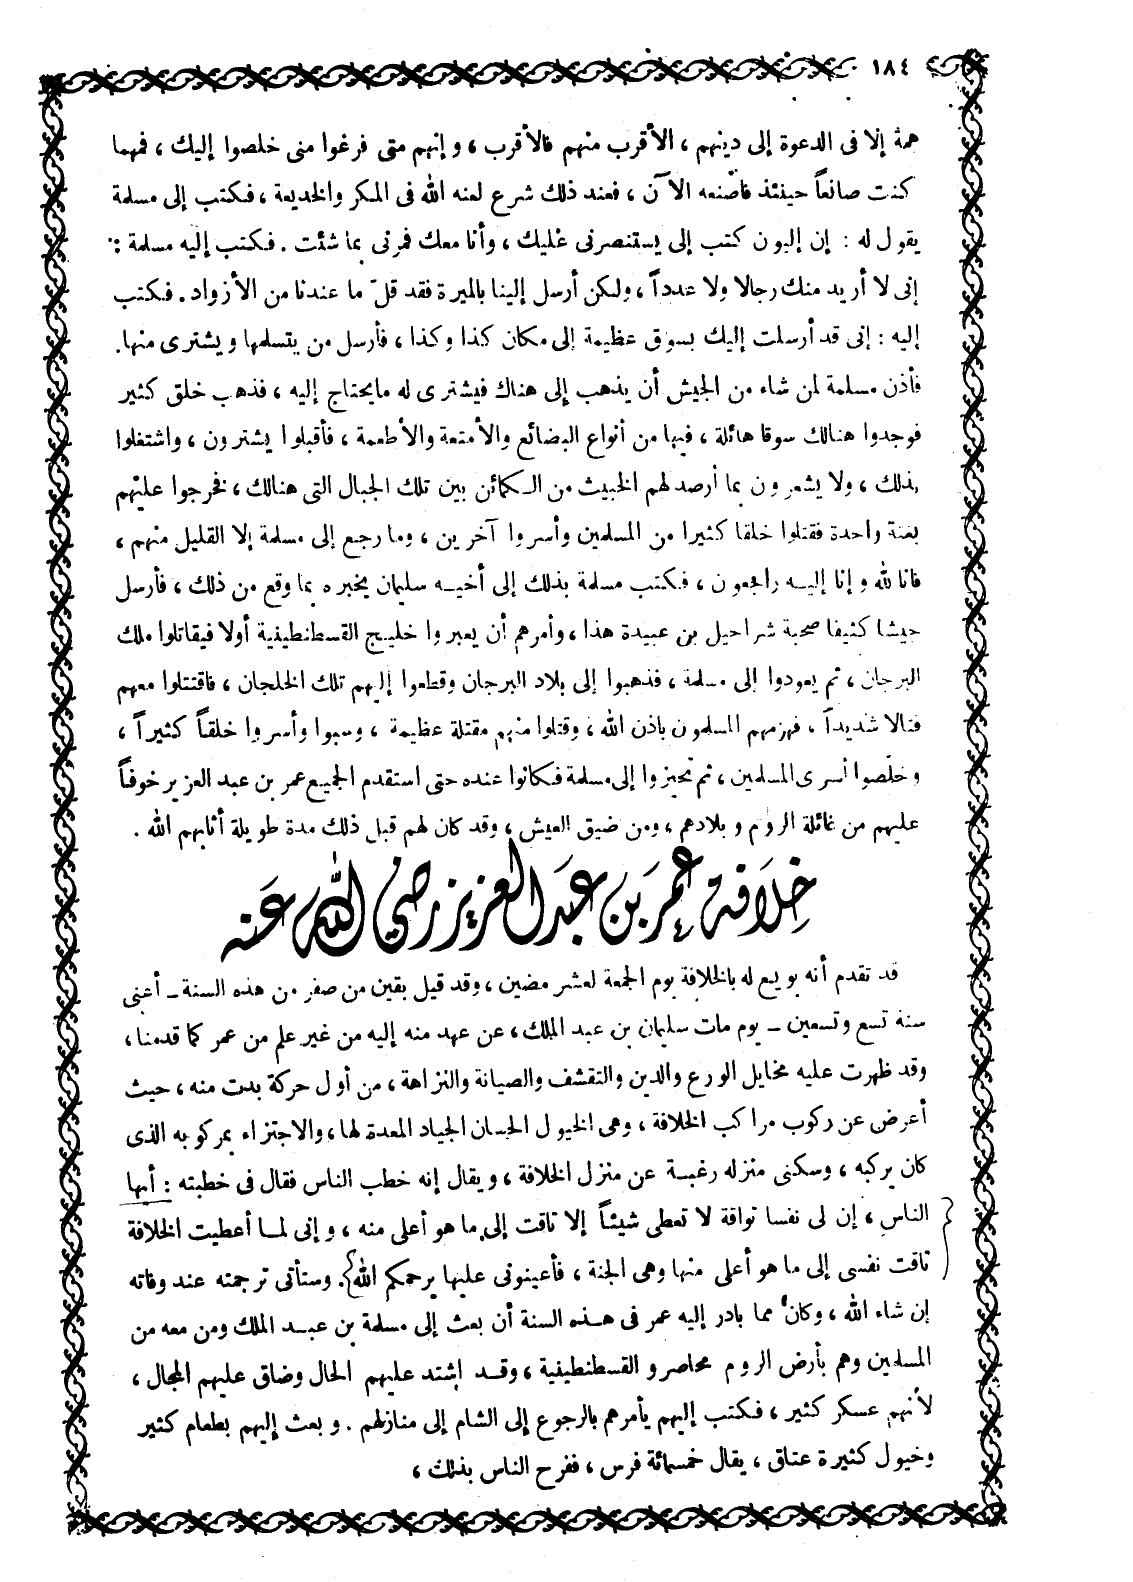 ١٨٤
همة إلا فى الدعوة إلى دينهم ، الأقرب منهم فالأقرب ، و إنهم متى فرغوا منى خلصوا إليك ، فمهما
كنت صانعاً حينئذ فاصنعه الآن ، فعند ذلك شرع لعنه الله فى المكر والخديعة ، فكتب إلى مسلمة
يقول له : إن إليون كتب إلى يستنصرنى عليك ، وأنا معك فمرنى بما شئت . فكتب إليه مسلمة :
إنى لا أريد منك رجالا ولا عدداً ، ولكن أرسل إلينا بالميرة فقد قلّ ما عندنا من الأزواد . فكتب
إليه : إنى قد أرسلت إليك بسوق عظيمة إلى مكان كذا وكذا ، فأرسل من يتسلمها ويشترى منها .
فأذن مسلمة لمن شاء من الجيش أن يذهب إلى هناك فيشترى له مايحتاج إليه ، فذهب خلق كثير
فوجدوا هنالك سوقا هائلة ، فيها من أنواع البضائع والأمتعة والأطعمة ، فأقبلوا يشترون ، واشتغلوا
بذلك ، ولا يشعرون بما أرصد لهم الخبيث من الكمائن بين تلك الجبال التى هنالك ، فخرجوا عليهم
بغتة واحدة فقتلوا خلقا كثيرا من المسلمين وأسروا آخرين ، وما رجع إلى مسلمة إلا القليل منهم ،
فانا لله و إنا إليه راجعون ، فكتب مسلمة بذلك إلى أخيه سليمان يخبره بما وقع من ذلك ، فأرسل
جيشا كثيفا صحبة شراحيل بن عبيدة هذا ، وأمرهم أن يعبروا خليج القسطنطينية أولا فيقاتلوا ملك
البرجان ، ثم يعودوا إلى مسلمة ، فذهبوا إلى بلاد البرجان وقطعوا إليهم تلك الخلجان ، فاقتتلوا معهم
قتالا شديداً ، فهزمهم المسلمون باذن الله ، وقتلوا منهم مقتلة عظيمة ، وسبوا وأسروا خلقاً كثيراً ،
وخلصوا أسرى المسلمين ، ثم تحيزوا إلى مسلمة فكانوا عنده حتى استقدم الجميع عمر بن عبد العزيز خوفاً
عليهم من غائلة الروم و بلادهم ، ومن ضيق العيش ، وقد كان لهم قبل ذلك مدة طويلة أثابهم الله .
خلافة عمر بن عبد العزيز رضي الله عنه
قد تقدم أنه بويع له بالخلافة يوم الجمعة لعشر مضين ، وقد قيل بقين من صفر من هذه السنة ـ أعنى
سنة تسع وتسعين ـ يوم مات سليمان بن عبد الملك ، عن عهد منه إليه من غير علم من عمر كما قدمنا ،
وقد ظهرت عليه مخايل الورع والدين والتقشف والصيانة والنزاهة ، من أول حركة بدت منه ، حيث
أعرض عن ركوب مراكب الخلافة ، وهى الخيول الحسان الجياد المعدة لها ، والاجتزاء بمركوبه الذى
كان يركبه ، وسكنى منزله رغبة عن منزل الخلافة ، ويقال إنه خطب الناس فقال فى خطبته : أيها
الناس ، إن لى نفسا تواقة لا تعطى شيئاً إلا تاقت إلى ما هو أعلى منه ، و إنى لما أعطيت الخلافة
تاقت نفسى إلى ما هو أعلى منها وهى الجنة ، فأعينونى عليها يرحمكم الله . وستأتى ترجمته عند وفاته
إن شاء الله ، وكان مما بادر إليه عمر فى هذه السنة أن بعث إلى مسلمة بن عبد الملك ومن معه من
المسلمين وهم بأرض الروم محاصرو القسطنطينية ، وقد اشتد عليهم الحال وضاق عليهم المجال ،
لأنهم عسكر كثير ، فكتب إليهم يأمرهم بالرجوع إلى الشام إلى منازلهم . و بعث إليهم بطعام كثير
وخيول كثيرة عتاق ، يقال خمسمائة فرس ، ففرح الناس بذلك ،